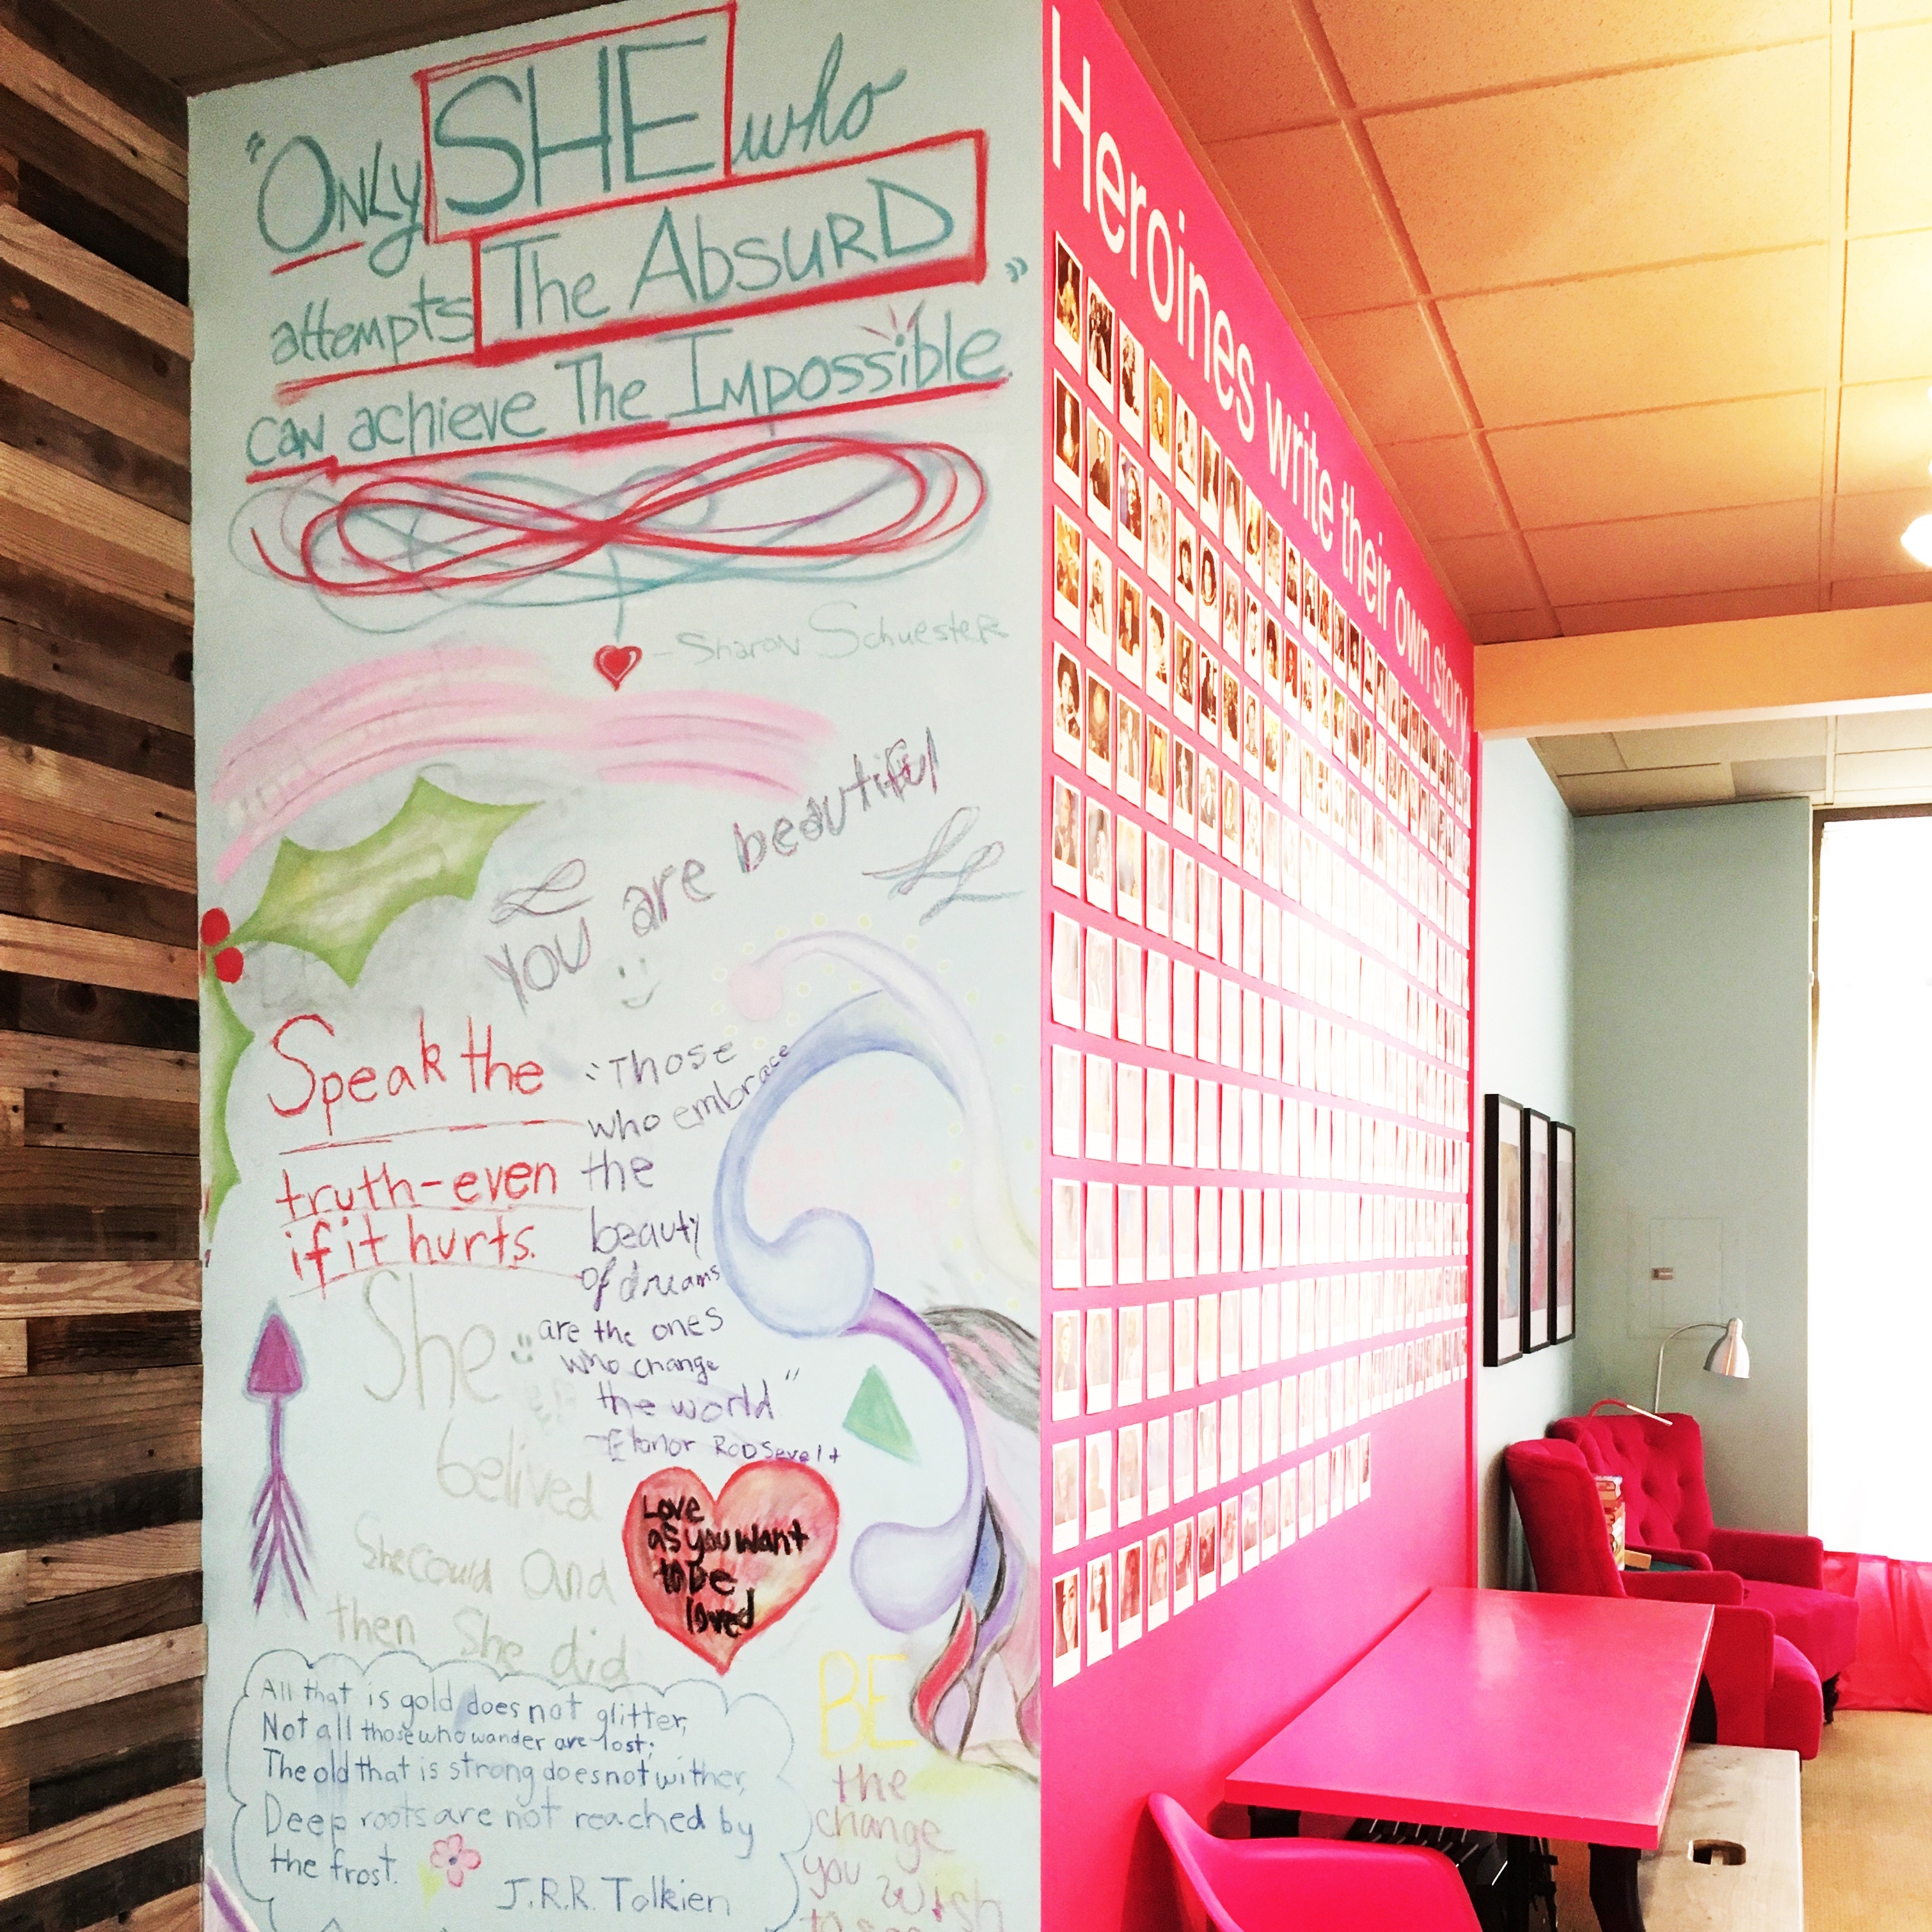 "Only SHE who
attempts The Absurd
can achieve The Impossible."
- Sharon Schuester
You are beautiful
Speak the
truth-even
if it hurts.
"Those
who embrace
the
beauty
of dreams
are the ones
who change
the world"
-Elanor Roosevelt
She
belived
She could and
then She did
Love
as you want
to be
loved
All that is gold does not glitter,
Not all those who wander are lost;
The old that is strong does not wither,
Deep roots are not reached by
the frost.
J.R.R. Tolkien
BE
the
change
you
wish
to see
Heroines write their own story.